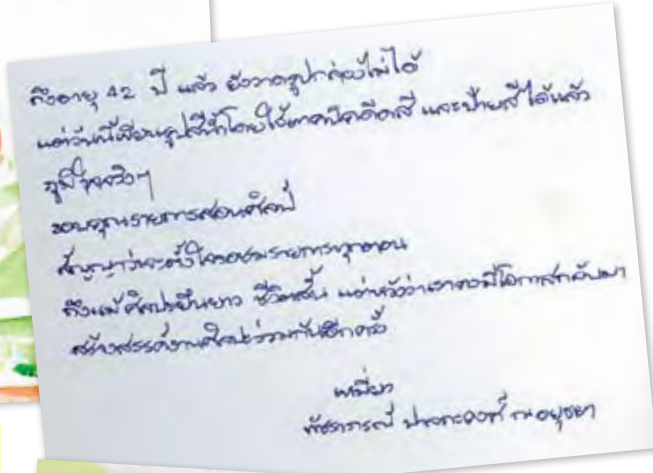 ถึงอายุ 42 ปี แล้ว ยังวาดรูป ไม่ได้
แต่วันนี้เขียนรูปสีน้ำโดยใช้เทคนิคดีดสี และป้ายสีได้แล้ว
ภูมิใจจริงๆ
ขอบคุณรายการสอนศิลป์
สัญญาว่าจะตั้งใจ ชมรายการทุกตอน
ถึงแม้ศิลปะยืนยาว ชีวิตสั้น แต่หวังว่าเราคงมีโอกาสกลับมา
สร้างสรรค์งานศิลปะร่วมกันอีกครั้ง
เหมียว
ณ อยุธยา